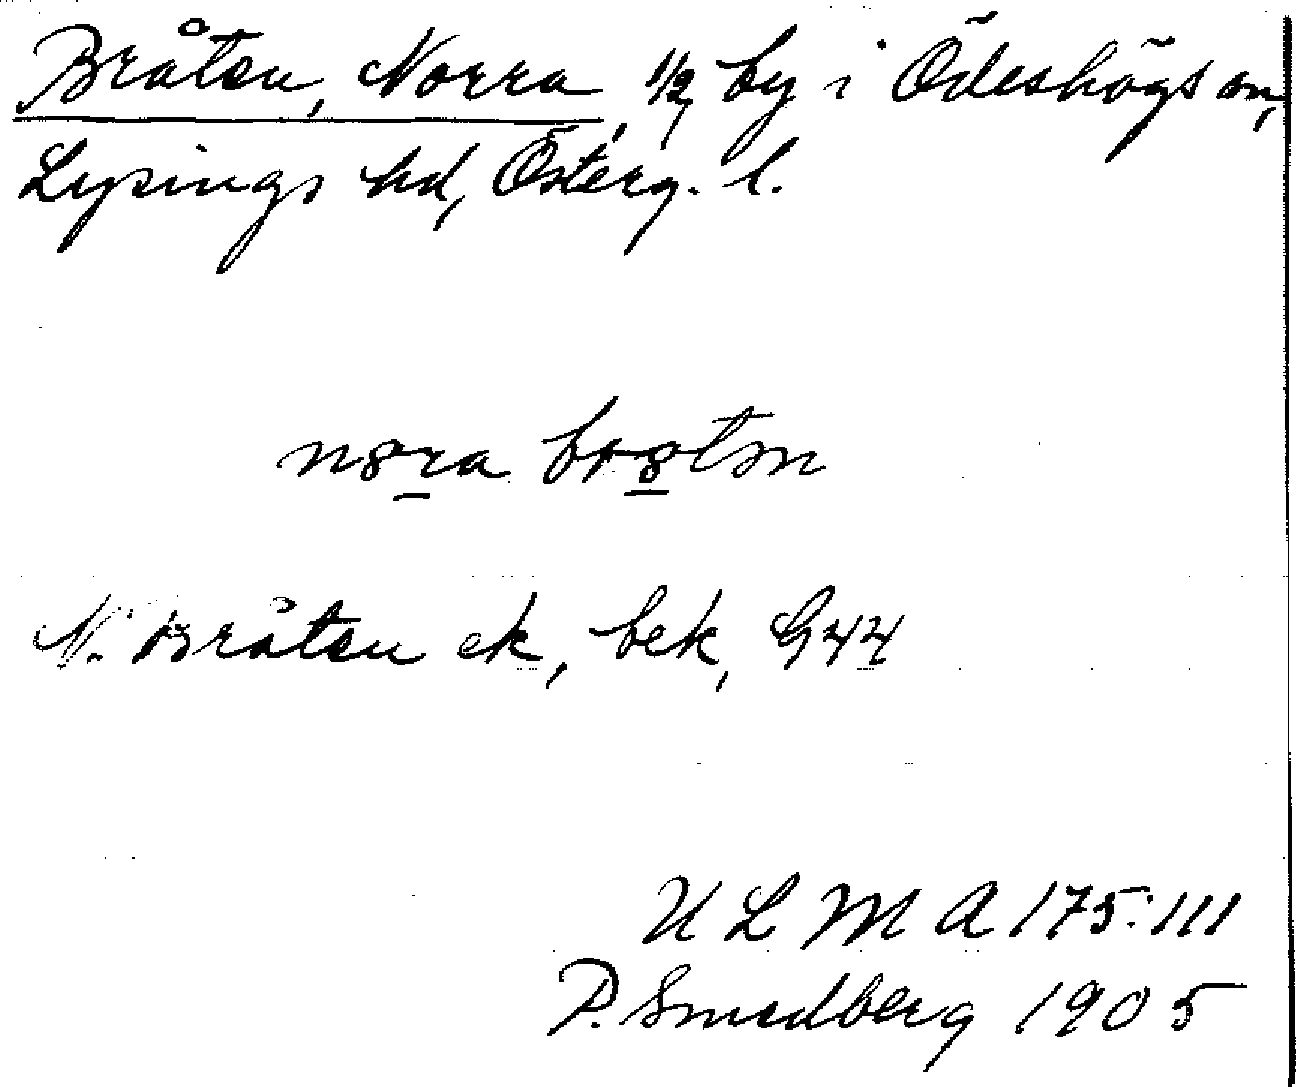 Bråten, Norra, 1/2 by i Ödeshögs sn,
Lysings hd, Österg. l.
N. Bråten ek, bek, G44
U L M A 175:111
P. Smedberg 1905